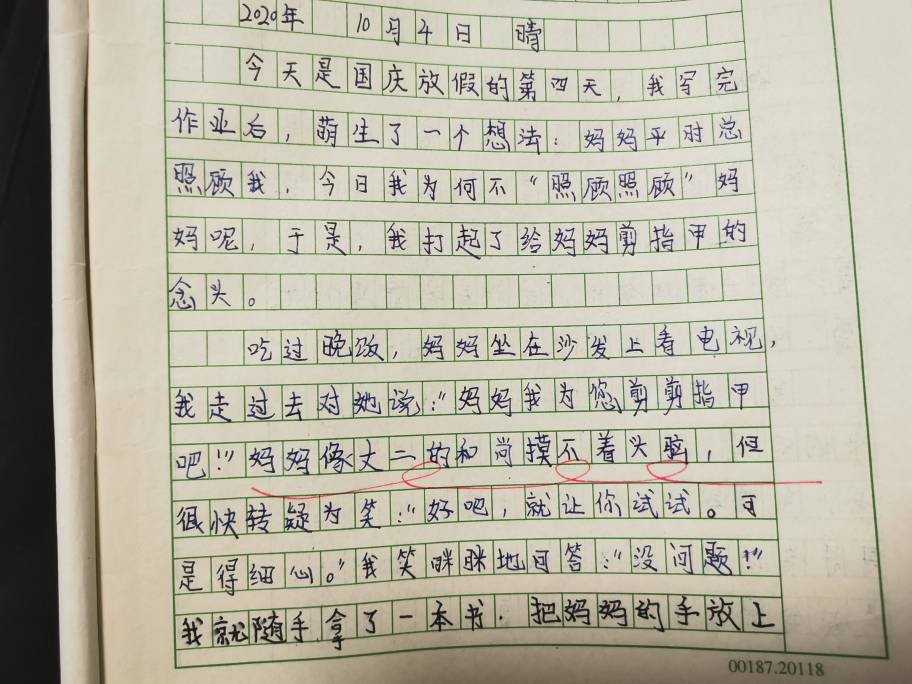 2020年 10月4日 晴
今天是国庆放假的第四天，我写完
作业后，萌生了一个想法：妈妈平时总
照顾我，今日我为何不“照顾照顾”妈
妈呢，于是，我打起了给妈妈剪指甲的
念头。
吃过晚饭，妈妈坐在沙发上看电视，
我走过去对她说：“妈妈我为您剪剪指甲
吧！”妈妈像丈二的和尚摸不着头脑，但
很快转疑为笑：“好吧，就让你试试。可
是得细心。”我笑眯眯地回答：“没问题！”
我就随手拿了一本书．把妈妈的手放上
00187.20118